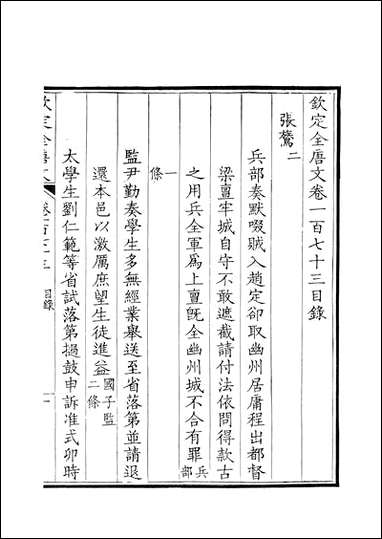 欽定全唐文卷一百七十三目錄
張鷟二
兵部奏默啜賊入趙定卻取幽州居庸程出都督
梁亶牢城自守不敢遮截請付法依問得款古
之用兵全軍為上亶既全幽州城不合有罪兵部
一
條
監尹勤奏學生多無經業舉送至省落第並請退
還本邑以激厲庶望生徒進益國子監
二條
太學生劉仁範等省試落第撾鼓申訴准式卯時
欽定全唐文 卷一百七十三 目錄 一